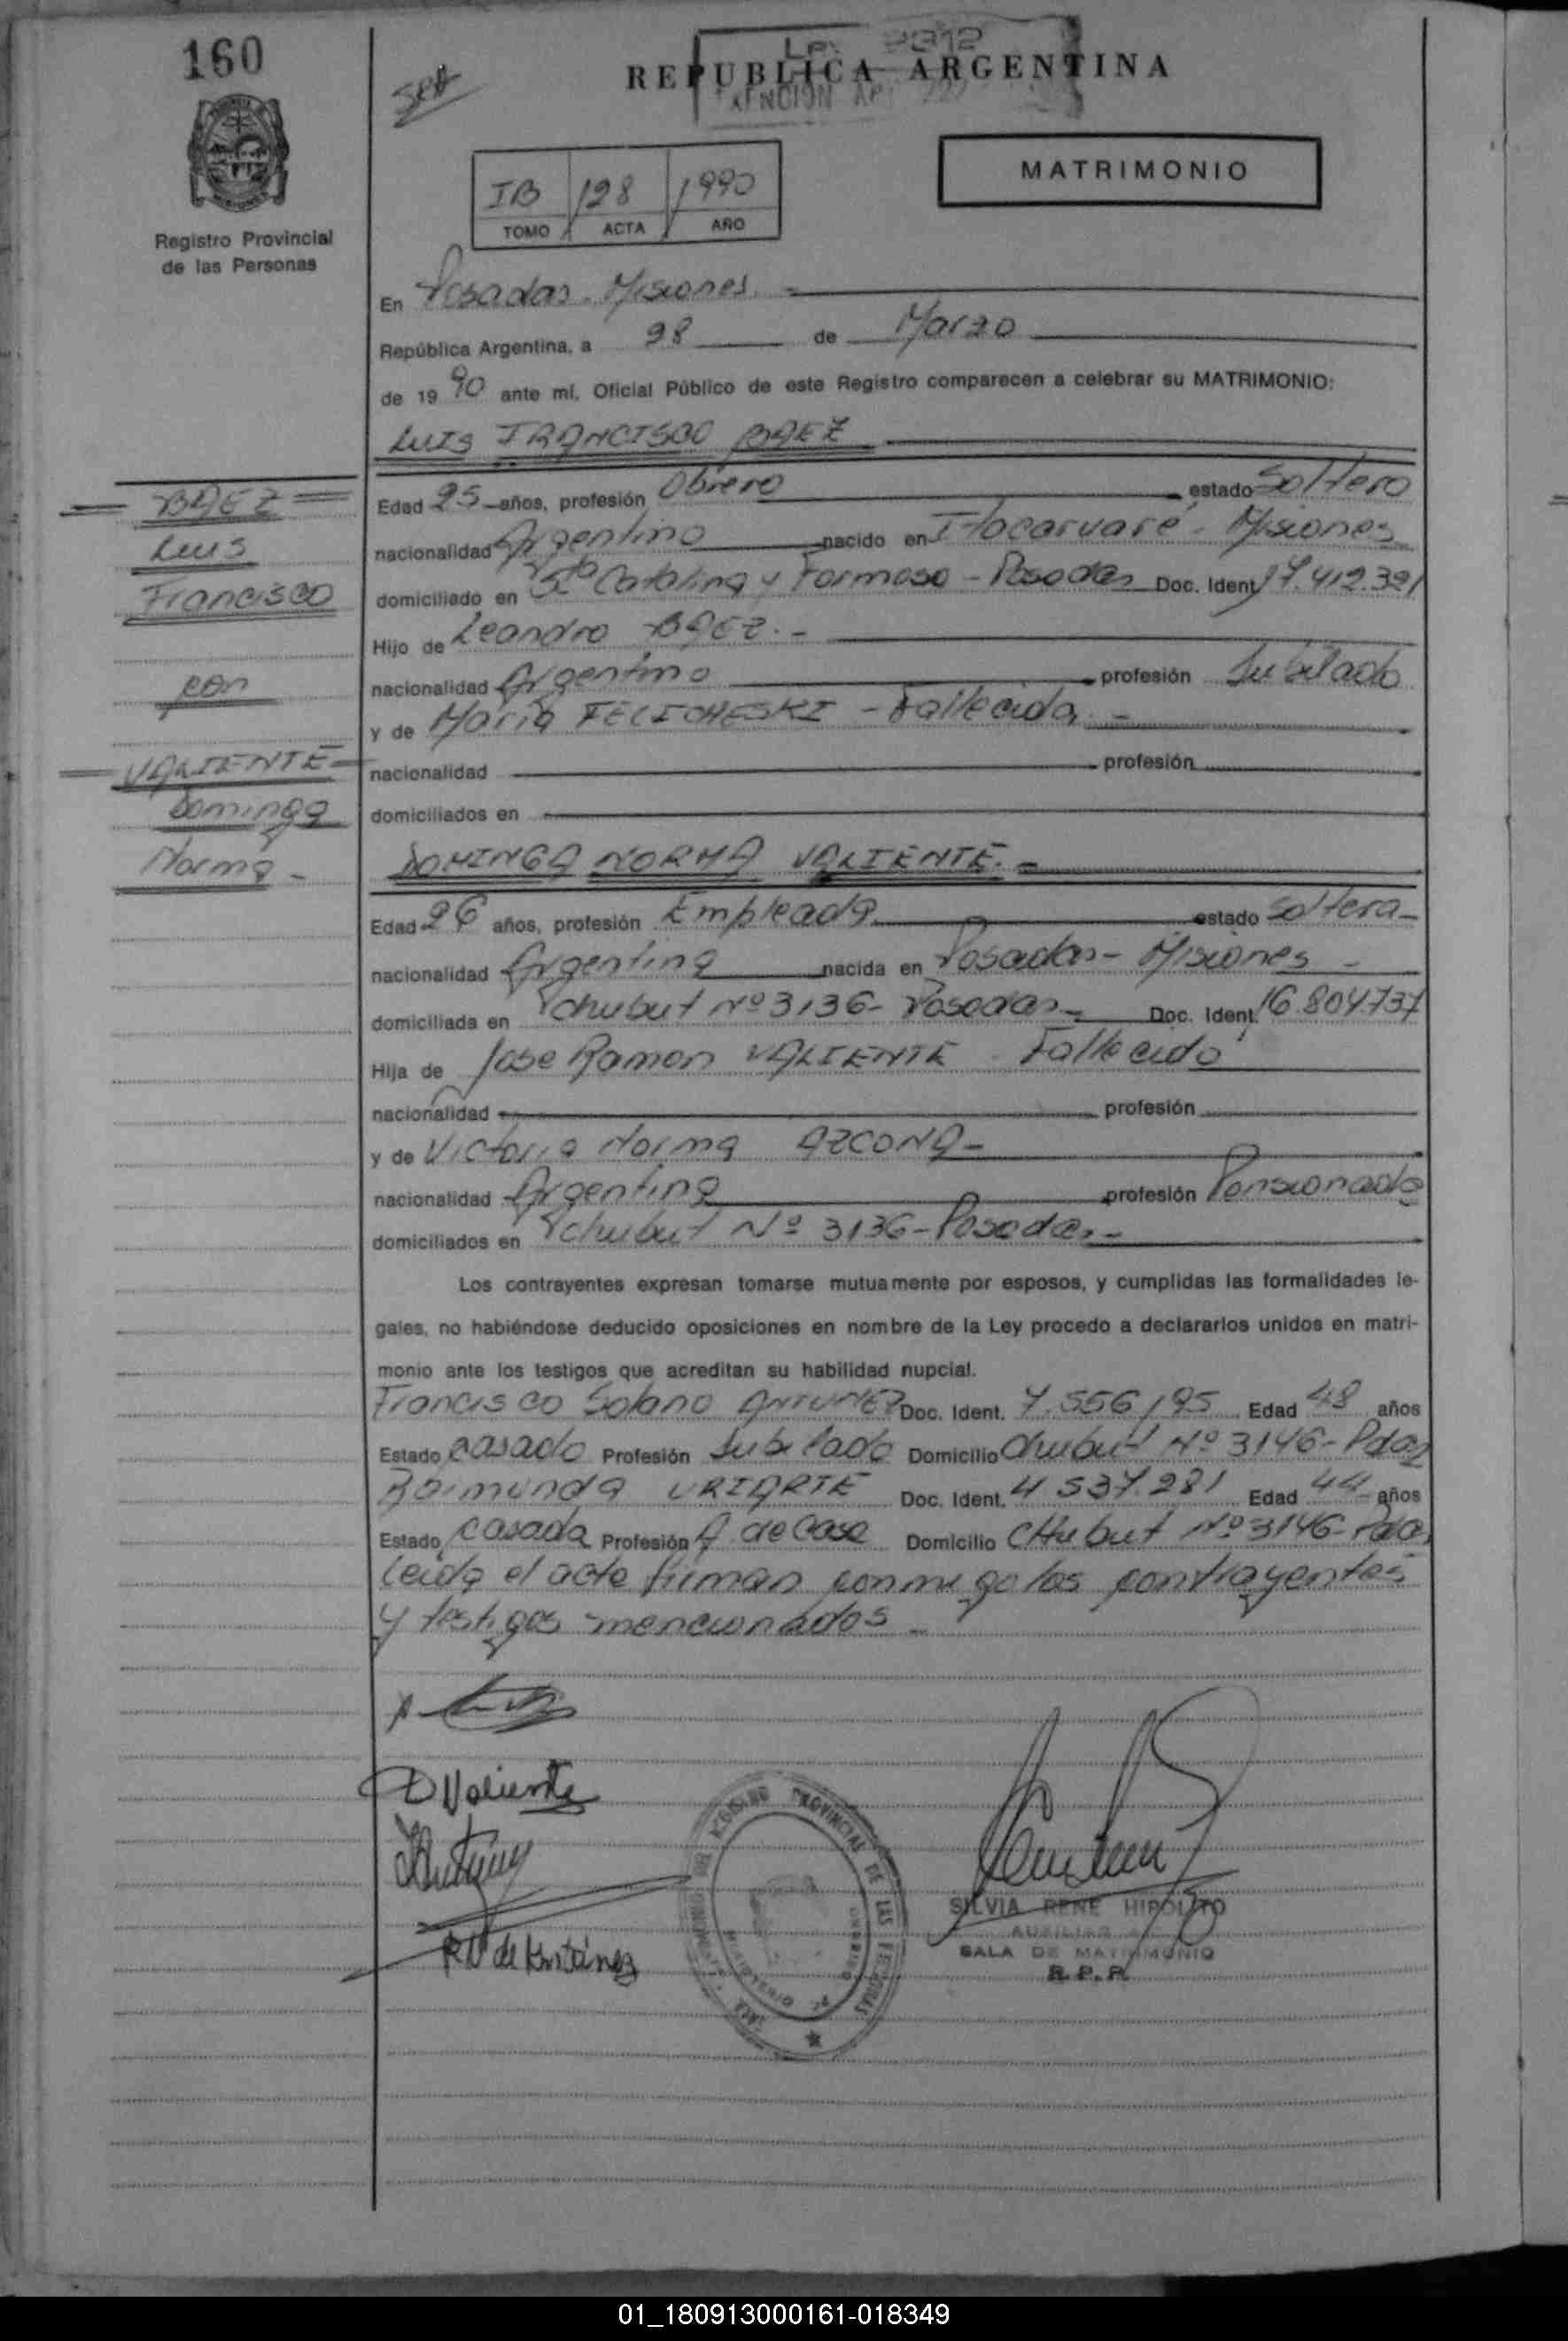 160
REPUBLICA ARGENTINA
MATRIMONIO
IB 128 1990
TOMO ACTA AÑO
Registro Provincial
de las Personas
En Posadas. Misiones.
República Argentina, a 28 de Marzo
de 1990 ante mí, Oficial Público de este Registro comparecen a celebrar su MATRIMONIO:
LUIS FRANCISCO BAEZ
BAEZ
Luis
Francisco
con
VALIENTE
Dominga
Norma -
Edad 25 años, profesión Obrero estado Soltero
nacionalidad Argentino nacido en Itacaruaré - Misiones
domiciliado en Sta Catalina y Formosa - Posadas Doc. Ident. 17.412.321
Hijo de Leandro BAEZ. -
nacionalidad Argentino profesión Jubilado
y de María FELICHESKI - Fallecida. -
nacionalidad profesión
domiciliados en
DOMINGA NORMA VALIENTE. -
Edad 26 años, profesión Empleada estado Soltera -
nacionalidad Argentina nacida en Posadas - Misiones -
domiciliada en Chubut Nº 3136 - Posadas - Doc. Ident. 16.804.737
Hija de Jose Ramon VALIENTE - Fallecido
nacionalidad profesión
y de Victoria Norma AZCONA -
nacionalidad Argentina profesión Pensionada
domiciliados en Chubut Nº 3136 - Posadas -
Los contrayentes expresan tomarse mutuamente por esposos, y cumplidas las formalidades le-
gales, no habiéndose deducido oposiciones en nombre de la Ley procedo a declararlos unidos en matri-
monio ante los testigos que acreditan su habilidad nupcial.
Francisco Solano ANTUNEZ Doc. Ident. 7.556.195 Edad 48 años
Estado casado Profesión Jubilado Domicilio Chubut Nº 3146 - Pdas
Raimunda URIARTE Doc. Ident. 4.537.281 Edad 44 años
Estado casada Profesión A. de Casa Domicilio CHubut Nº 3146 - Pdas
Leida el acta firman conmigo los contrayentes
y testigos mencionados -
D Valiente
R U de Antúnez
REGISTRO PROVINCIAL DE LAS PERSONAS
SILVIA RENE HIPOLITO
AUXILIAR
SALA DE MATRIMONIO
R. P. P.
01_180913000161-018349